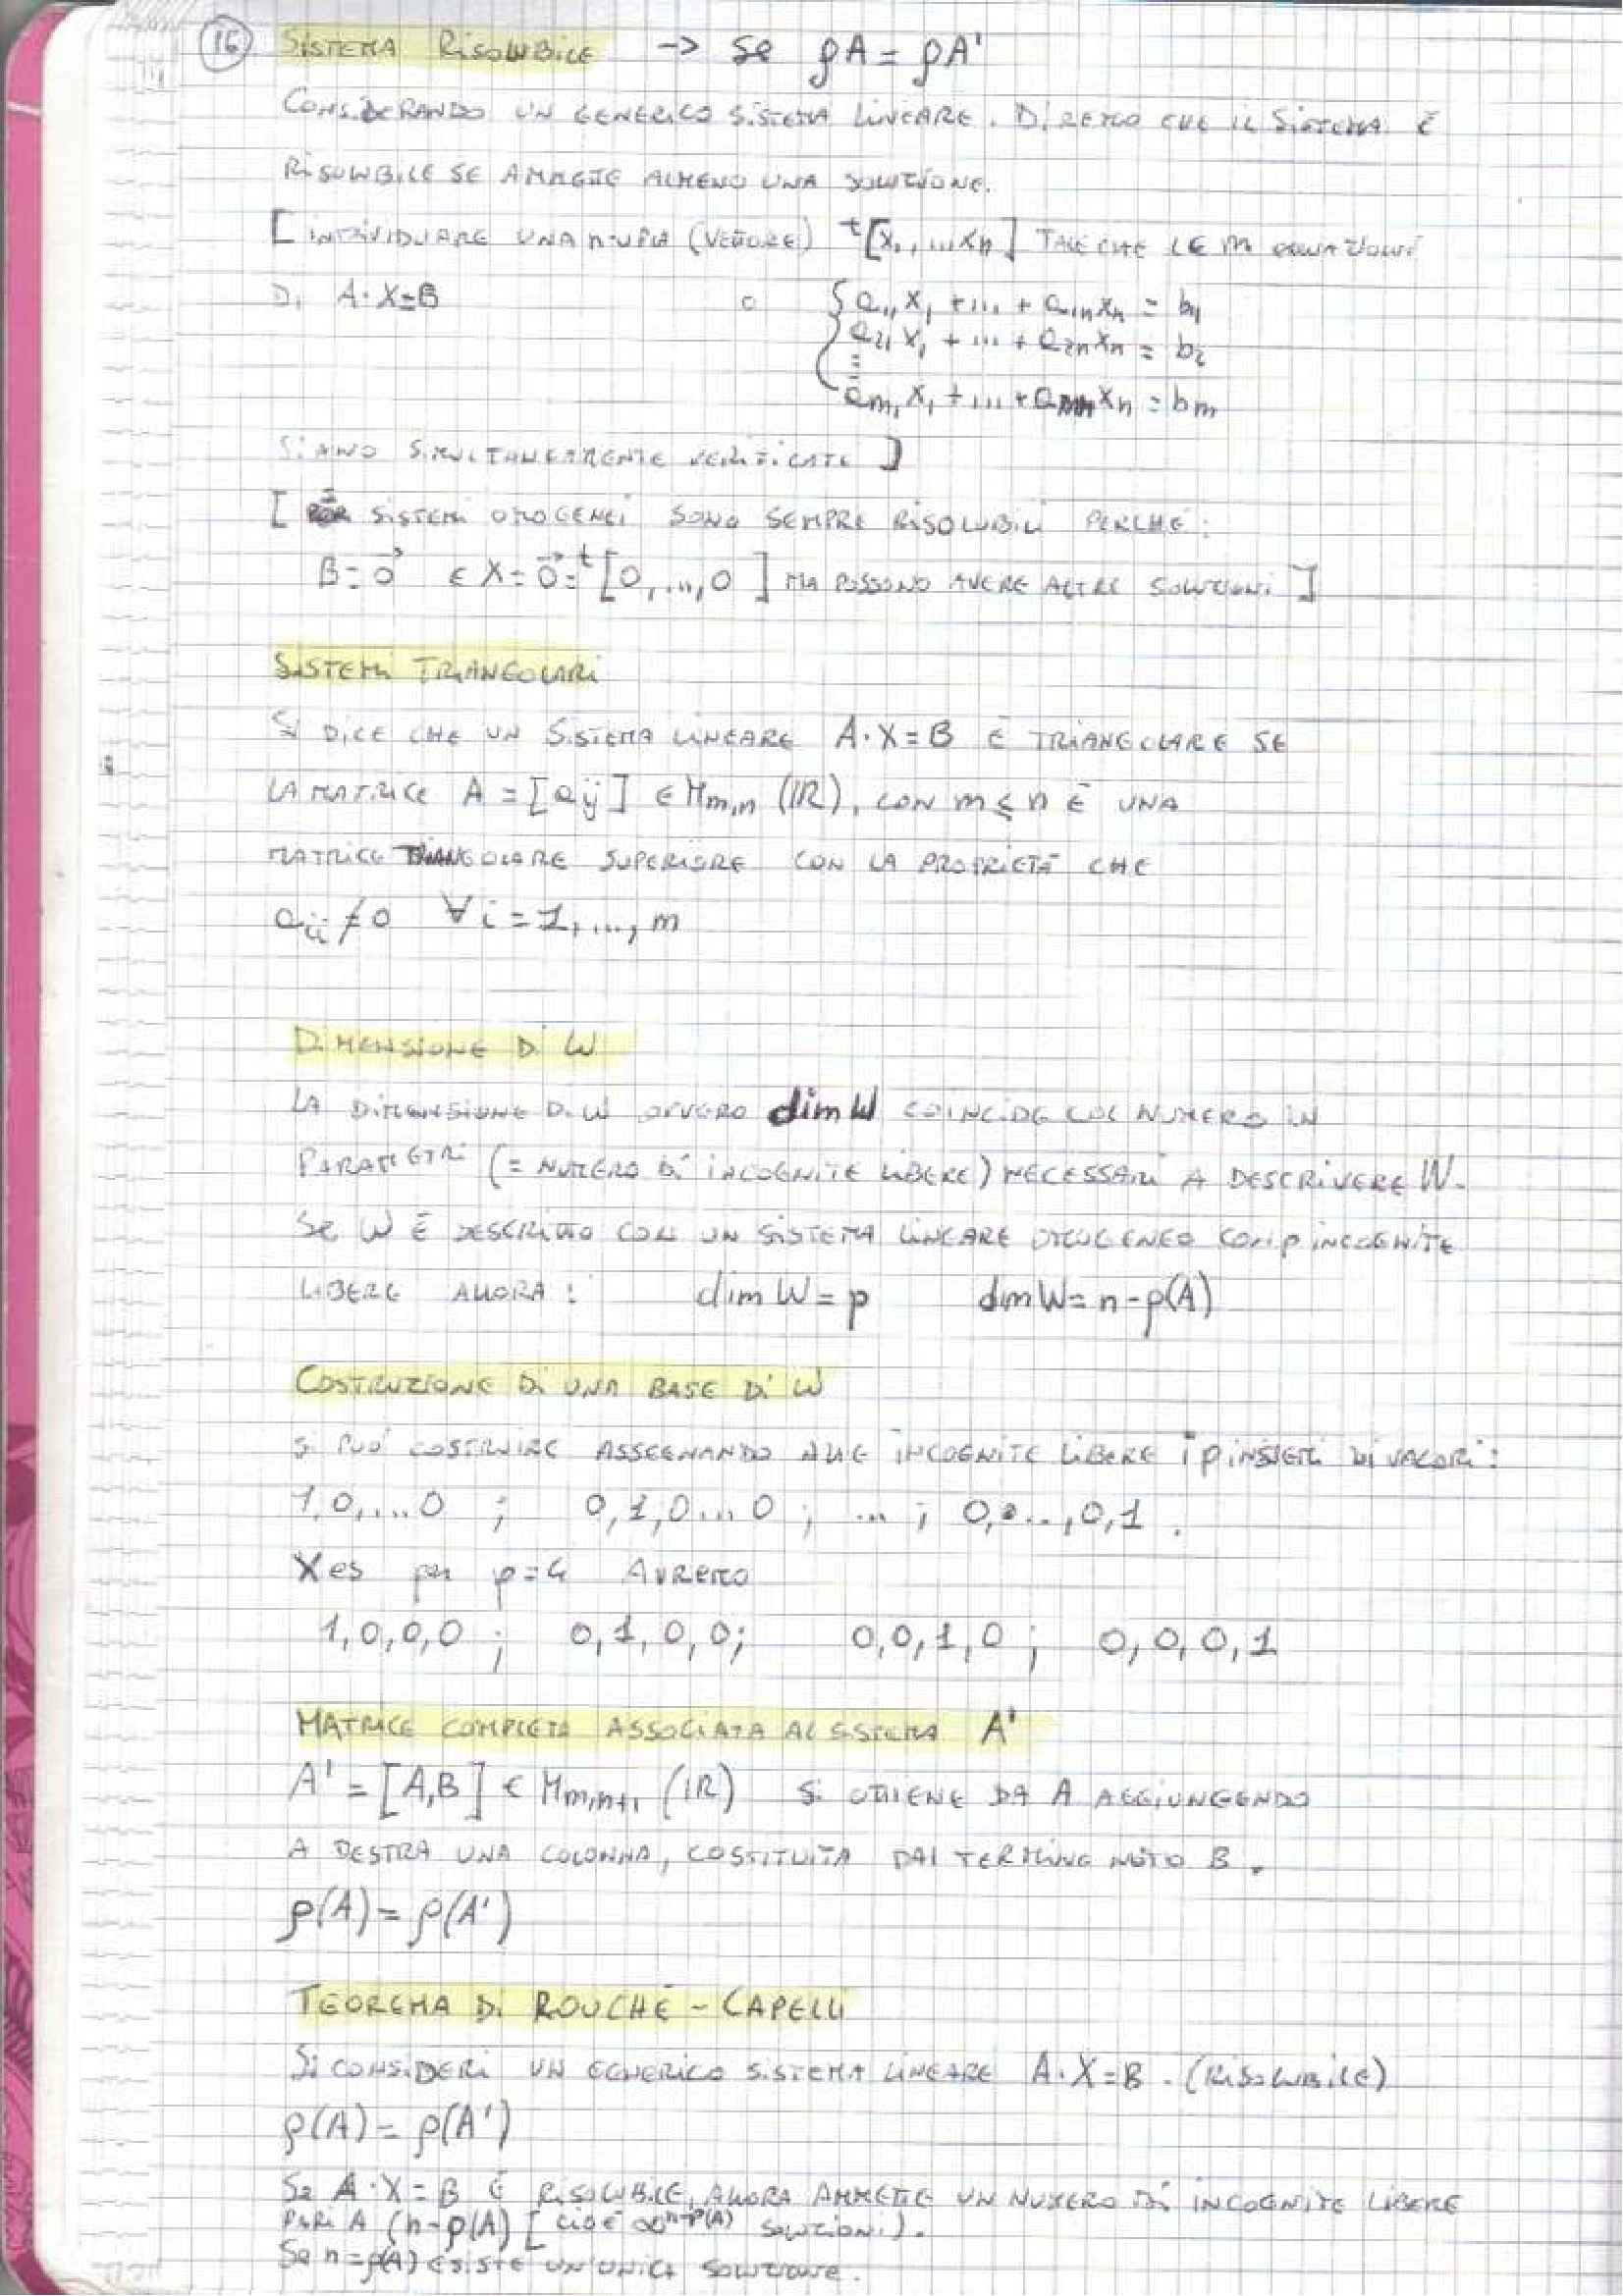 16 SISTEMA RISOLUBILE -> se ρA = ρA'
CONSIDERANDO UN GENERICO SISTEMA LINEARE. DIREMO CHE IL SISTEMA È
RISOLUBILE SE AMMETTE ALMENO UNA SOLUZIONE.
[ INDIVIDUARE UNA n-UPLA (VETTORE) ᵗ[x₁,...xₙ] TALE CHE LE m EQUAZIONI
DI A·X=B o { a₁₁x₁ + ... + a₁ₙxₙ = b₁
a₂₁x₁ + ... + a₂ₙxₙ = b₂
⋮
aₘ₁x₁ + ... + aₘₙxₙ = bₘ
SIANO SIMULTANEAMENTE VERIFICATE ]
[ SISTEMI OMOGENEI SONO SEMPRE RISOLUBILI PERCHÉ:
B=0⃗ E X=0⃗=ᵗ[0,...,0] MA POSSONO AVERE ALTRE SOLUZIONI ]
SISTEMI TRIANGOLARI
SI DICE CHE UN SISTEMA LINEARE A·X=B È TRIANGOLARE SE
LA MATRICE A = [aij] ∈ Mm,n (IR), CON m ≤ n È UNA
MATRICE TRIANGOLARE SUPERIORE CON LA PROPRIETÀ CHE
aii ≠ 0 ∀ i = 1,...,m
DIMENSIONE DI W
LA DIMENSIONE DI W OVVERO dim W COINCIDE COL NUMERO IN
PARAMETRI (= NUMERO DI INCOGNITE LIBERE) NECESSARI A DESCRIVERE W.
SE W È DESCRITTO CON UN SISTEMA LINEARE OMOGENEO CON p INCOGNITE
LIBERE ALLORA: dim W = p dim W = n - ρ(A)
COSTRUZIONE DI UNA BASE DI W
SI PUÒ COSTRUIRE ASSEGNANDO ALLE INCOGNITE LIBERE i p INSIEMI DI VALORI:
1,0,...0 ; 0,1,0...0 ; ... ; 0,0...,0,1 .
Xes per p=4 AVREMO
1,0,0,0 ; 0,1,0,0; 0,0,1,0 ; 0,0,0,1
MATRICE COMPLETA ASSOCIATA AL SISTEMA A'
A' = [A,B] ∈ Mm,n+1 (IR) SI OTTIENE DA A AGGIUNGENDO
A DESTRA UNA COLONNA, COSTITUITA DAI TERMINE NOTO B.
ρ(A) = ρ(A')
TEOREMA DI ROUCHÉ - CAPELLI
SI CONSIDERI UN GENERICO SISTEMA LINEARE A·X=B. (RISOLUBILE)
ρ(A) = ρ(A')
Se A·X = B È RISOLUBILE, ALLORA AMMETTE UN NUMERO DI INCOGNITE LIBERE
PARI A (n-ρ(A) [ CIOÈ ∞ⁿ⁻ᵖ⁽ᴬ⁾ SOLUZIONI).
Se n=ρ(A) ESISTE UN'UNICA SOLUZIONE.